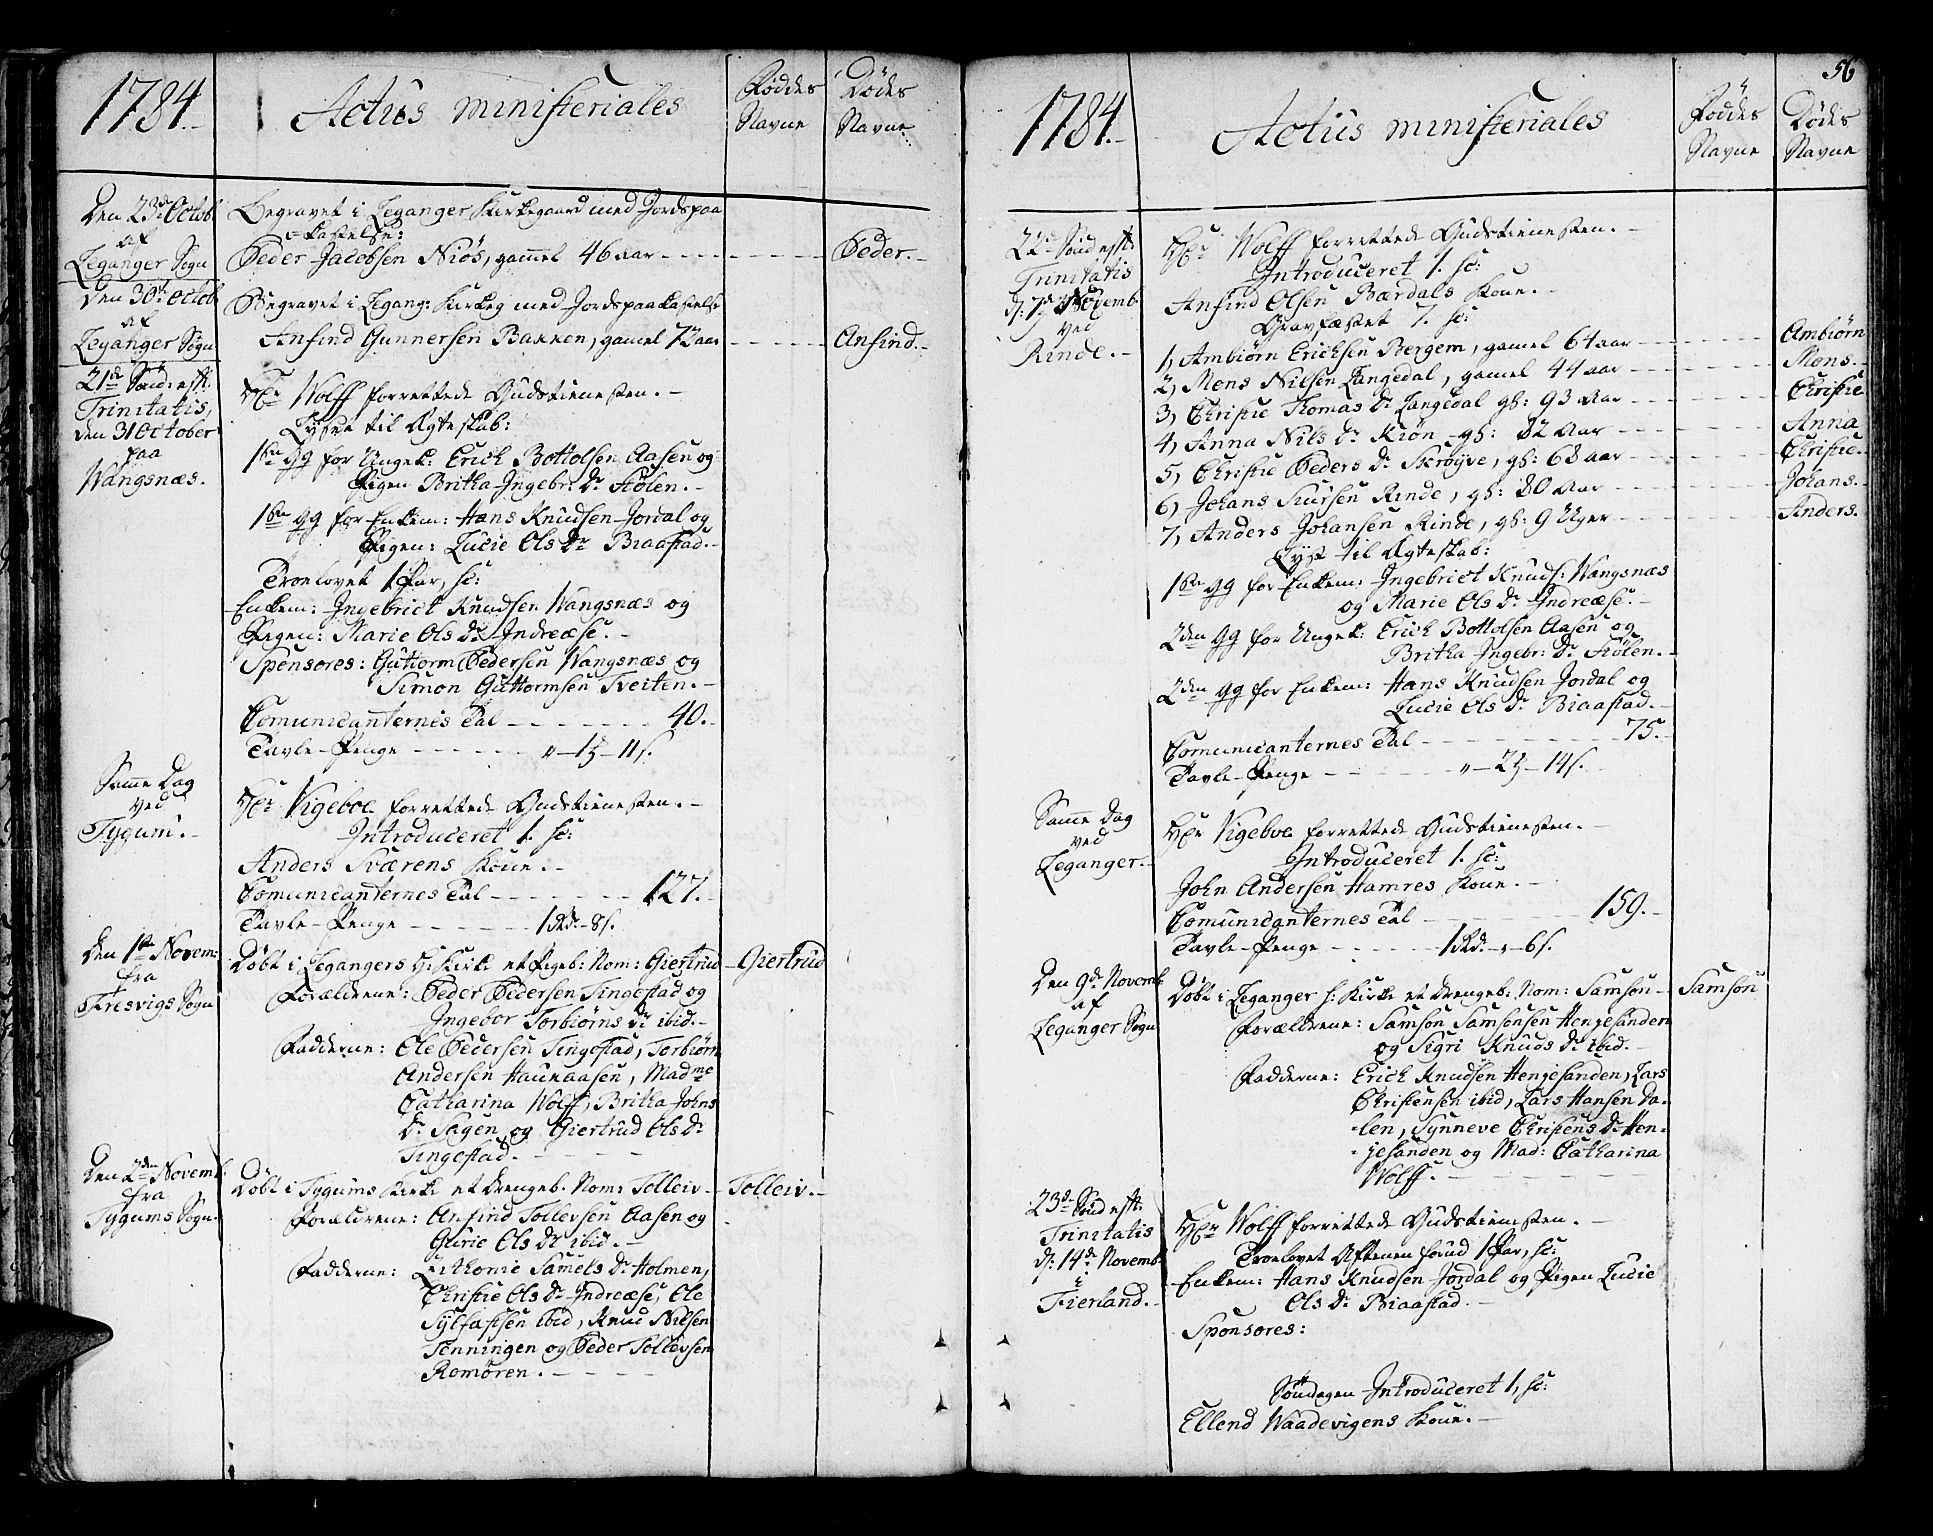 1784.
Actus ministeriales
Føddes Navne
Dødes Navne
Den 23de Octob.
af
Leganger Sogn
Begravet i Leganger Kirkegaard med Jordspaa
-kastelse:
Peder Jacobsen Niøs, gammel 46 aar - - - - Peder.-
Den 30te Octob.
af
Leganger Sogn
Begravet i Legang: Kirkeg med Jordspaakastelse
Anfind Gunnersen Bakken, gamel 72 aar - - - - Anfind.-
21de Sønd. eft.
Trinitatis,
den 31 October
paa
Wangsnæs.
Hr Wolff forrettede Gudstienesten.-
Lyst til Ægteskab:
1ste gg for Ungek: Erich Bottolsen Aasen og
Pigen Britha Ingebr: Dr Stølen.-
1ste gg for Enkem: Hans Knudsen Jordal og
Pigen: Lucie Ols Dr Biaastad.-
Troelovet 1 Par, sc:
Enkem: Ingebrict Knudsen Wangsnæs og
Pigen: Marie Ols Dr Indreæse.-
Sponsores: Guttorm Pedersen Wangsnæs og
Simon Guttormsen Tveiten.-
Comunicanternes Tal - - - - 40.-
Tavle-Penge - - - - „-1ƺ-11s.
Samme Dag
ved
Tygum.-
Hr Vigeboe forrettede Gudstienesten.-
Introduceret 1. sc:
Anders Sværens Kone.-
Comunicanternes Tal - - - - 127.-
Tavle-Penge - - - - 1Rd.-8s.
Den 1ste Novem:
fra
Fresvigs Sogn
Døbt i Legangers H: Kirke et Pigeb: Nom: Giertrud - Giertrud
Forældrene: Peder Pedersen Tingestad og
Ingebor Torbiørns Dr ibid.-
Fadderne: Ole Pedersen Tingestad, Torbiørn
Andersen Haukaasen, Madme
Catharina Wolff, Britha Johns
Dr Sagen og Giertrud Ols Dr
Tingestad.- - - -
Den 2den Novemb.
fra
Tygums Sogn.
Døbt i Tygums Kirke et Drengeb. Nom: Tolleiv - Tolleiv.-
Forældrene: Anfind Tollevsen Aasen og
Gurie Ols Dr ibid.-
Fadderne: Samels Dr Holmen,
Christie Ols Dr Indreæse, Ole
Sylfastsen ibid, Knud Nilsen
Tenningen og Peder Tollevsen
Romøren.- - - -
56
1784.-
Actus ministeriales
Føddes Navne
Dødes Navne
22de Sønd eft:
Trinitatis
d: 7de Novemb.
ved
Rinde.-
Hr Wolff forrettede Gudstienesten.-
Introduceret 1. sc:
Anfind Olsen Bærdals Kone.-
Gravfæstet 7. sc:
1, Ambiørn Ericksen Bergem, gamel 64 aar - - - - Ambiørn
2, Mons Nilsen Langedal, gamel 44 aar - - - - Mons.-
3, Christie Thomas Dr Langedal gl: 93 Aar - - - - Christie
4, Anna Nils Dr Kiøn gl: 82 Aar - - - - Anna
5, Christie Peders Dr Skrøyve, gl: 68 aar - - - - Christie.
6, Johans Siursen Rinde, gl: 80 Aar - - - - Johans.
7, Anders Johansen Rinde, gl: 9 Uger - - - - Anders.
Lyst til Ægteskab:
1ste gg for Enkem: Ingebrict Knuds: Wangsnæs
og Marie Ols Dr Indreæse.-
2den gg for Ungek: Erich Bottolsen Aasen og
Britha Ingebr: Dr Stølen.-
2den gg for Enkem: Hans Knudsen Jordal og
Lucie Ols Dr Biaastad.-
Comunicanternes Tal - - - - 75.-
Tavle-Penge - - - - „-2ƺ-14s.
Samme Dag
ved
Leganger.-
Hr Vigeboe forrettede Gudstienesten.-
Introduceret 1. sc:
John Andersen Hamres Kone.-
Comunicanternes Tal - - - - 159.-
Tavle-Penge - - - - 1Rd.-„-6s.
Den 9de Novemb.
af
Leganger Sogn
Døbt i Leganger H: Kirke et Drengeb: Nom: Samson - Samson
Forældrene: Samson Samsonsen Henjesanden
og Sigri Knuds Dr ibid.-
Fadderne: Erick Knudsen Henjesanden, Lars
Christensen ibid, Lars Hansen Da-
-len, Synneve Christens Dr Hen-
-jesanden og Mad: Catharina
Wolff.- - - -
23de Sønd eft:
Trinitatis
d: 14de Novemb.
i
Fierland.-
Hr Wolff forrettede Gudstienesten.-
Troelovet Aftenen forud 1 Par, sc:
Enkem: Hans Knudsen Jordal og Pigen Lucie
Ols Dr Biaastad.-
Sponsores:
Søndagen Introduceret 1, sc:
Ellend Waadevigens Kone.-